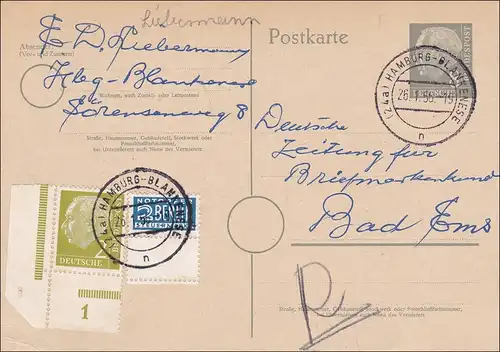 Liebermann
Postkarte
Absender:
(Vor- und Zuname)
E. D. Liebermann
Hbg-Blankenese
Wohnort, auch Zustell- oder Leitpostamt
Sörensenweg 8
Straße, Hausnummer, Gebäudeteil, Stockwerk oder
Postschließfachnummer,
bei Untermietern auch Name des Vermieters
DEUTSCHE BUNDESPOST
(24a) HAMBURG-BLANKENESE
n
Deutsche
Zeitung für
Briefmarkenkunde
Bad Ems
(24a) HAMBURG-BLANKENESE
n
NOTOPFER
2 BERLIN
STEUERMARKE
2
DEUTSCHE
1
Straße, Hausnummer, Gebäudeteil, Stockwerk oder Postschließfachnummer,
bei Untermietern auch Name des Vermieters